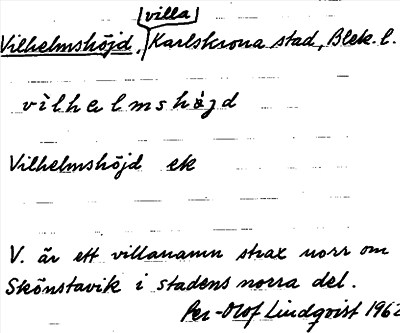 villa
Vilhelmshöjd, Karlskrona stad, Blek. l.
vilhelmshöjd
Vilhelmshöjd ek
V. är ett villanamn strax norr om
Skönstavik i stadens norra del.
Per-Olof Lindqvist 1962